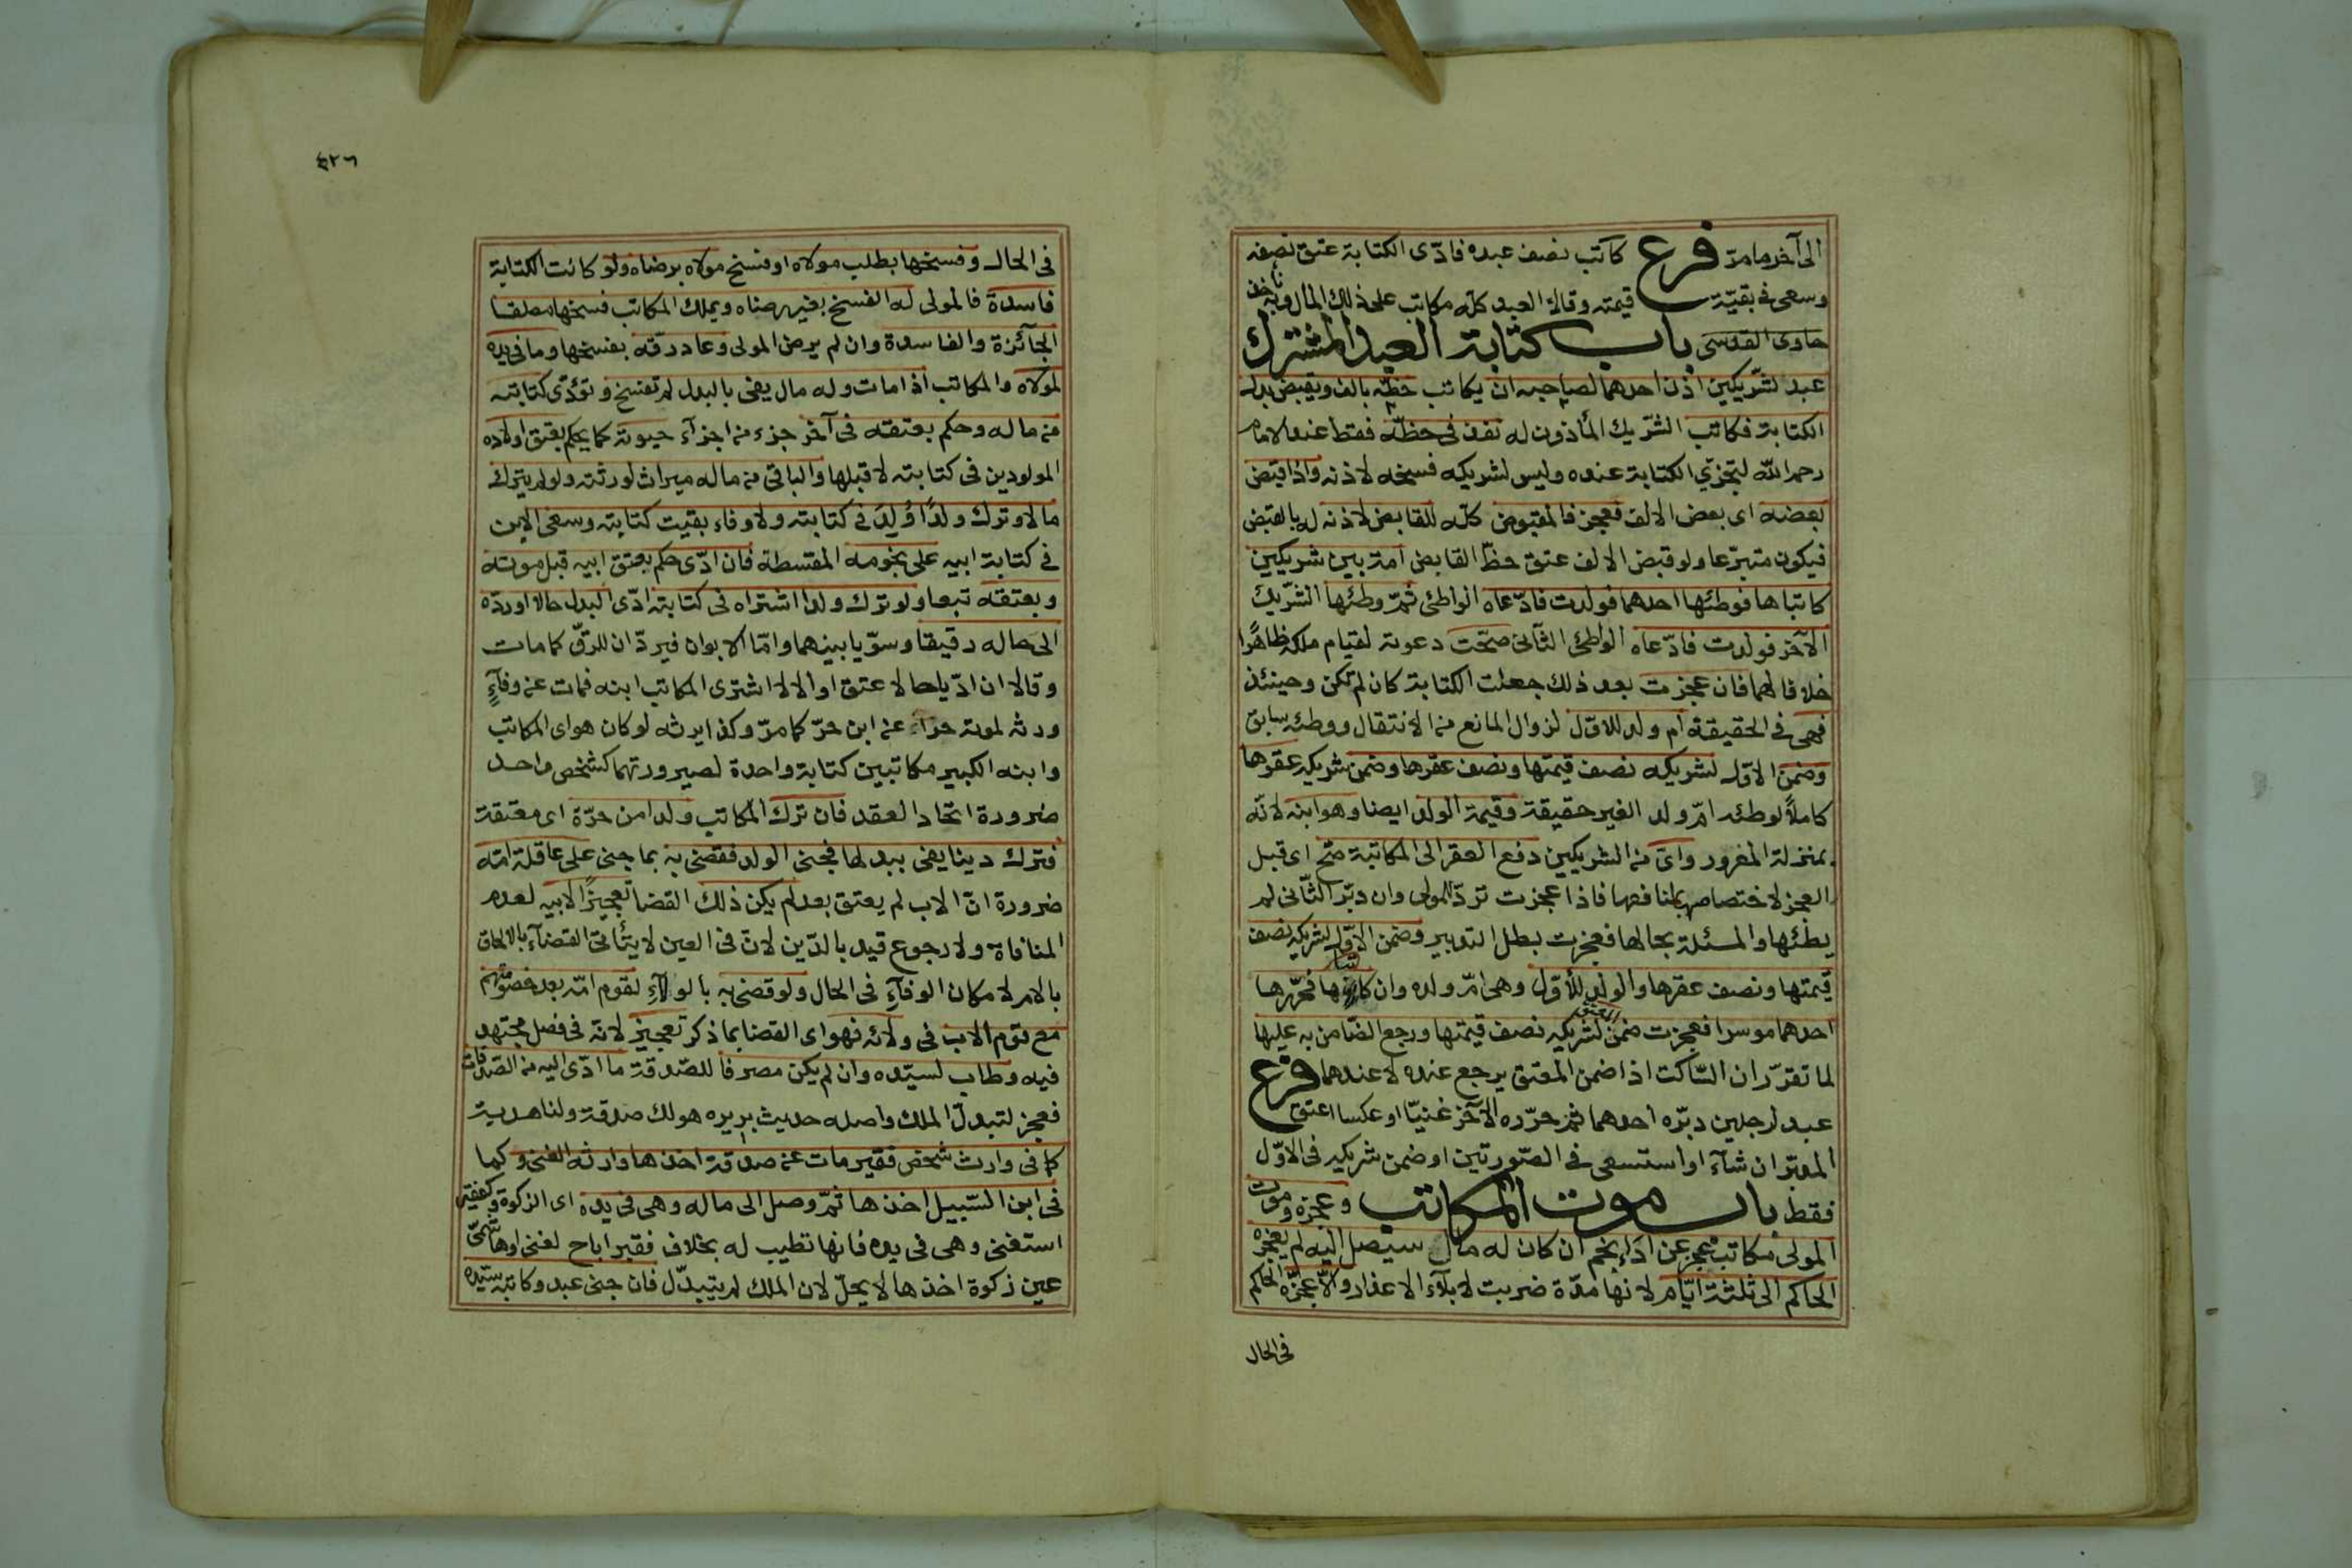 الى آخر ما مرّ فرع كاتب نصف عبده فادّى الكتابة عتق نصفه
وسعى فى بقيّة قيمته وقالا العبد كلّه مكاتب على ذلك المال وبه ناخذ
حاوى القدسى باب كتابة العبد المشترك
عبد لشريكين اذن احدهما لصاحبه ان يكاتب حظّه بالف ويقبض بدل
الكتابة فكاتب الشّريك المأذون له نفذ فى حظّه فقط عند الامام
رحمه الله لتجزّي الكتابة عنده وليس لشريكه فسخه لاذنه واذا قبض
بعضه اى بعض الالف فعجز فالمقبوض كلّه للقابض لاذنه له بالقبض
فيكون متبرّعا ولو قبض الالف عتق حظّ القابض امة بين شريكين
كاتباها فوطئها احدهما فولدت فادّعاه الواطئ ثمّ وطئها الشّريك
الآخر فولدت فادّعاه الواطئ الثّانى صحّت دعوته لقيام ملكه ظاهرًا
خلافا لهما فان عجزت بعد ذلك جعلت الكتابة كان لم تكن وحينئذ
فهى فى الحقيقة ام ولد للاوّل لزوال المانع من الانتقال ووطئه سابق
وضمن الاوّل لشريكه نصف قيمتها ونصف عقرها وضمن شريكه عقرها
كاملاً لوطئه امّ ولد الغير حقيقة وقيمة الولد ايضا وهو ابنه لانّه
بمنزلة المغرور واىّ من الشريكين دفع العقر الى المكاتبة صحّ اى قبل
العجز لاختصاصها بمنافعها فاذا عجزت تردّ للمولى وان دبّر الثّانى لم
يطئها والمسئلة بحالها فعجزت بطل التدبير وضمن الاوّل لشريكه نصف
قيمتها ونصف عقرها والولد للأوّل وهى امّ ولده وان كاتباها فحرّرها
احدهما موسرا فعجزت ضمن المعتق لشريكه نصف قيمتها ورجع الضّامن به عليها
لما تقرّر ان السّاكت اذا ضمن المعتق يرجع عنده لا عندهما فرع
عبد لرجلين دبّره احدهما ثمّ حرّره الآخر غنيّا او عكسا اعتق
المدبّر ان شآء او استسعى فى الصّورتين او ضمن شريكه فى الاوّل
فقط باب موت المكاتب وعجزه وموت
المولى مكاتب عجز عن ادآء نجم ان كان له مال سيصل اليه لم يعجزه
الحاكم الى ثلثة ايّام لانها مدّة ضربت لابلآء الاعذار والّا عجّزه الحاكم
فى الحال
٤٢٦
فى الحال وفسخها بطلب مولاه او فسخ مولاه برضاه ولو كانت الكتابة
فاسدة فالمولى له الفسخ بغير رضاه ويملك المكاتب فسخها مطلقا
الجآئزة والفاسدة وان لم يرض المولى وعاد رقّه بفسخها وما فى يده
لمولاه والمكاتب اذا مات وله مال يفى بالبدل لم تفسخ وتؤدّى كتابته
من ماله وحكم بعتقه فى آخر جزء من اجزآء حيوته كما يحكم بعتق اولاده
المولودين فى كتابته لا قبلها والباقى من ماله ميراث لورثته ولو لم يترك
مالا وترك ولدًا وُلِدَ فى كتابته ولا وفاء بقيت كتابته وسعى الابن
فى كتابة ابيه على نجومه المقسطة فان ادّى حكم بعتق ابيه قبل موته
وبعتقه تبعا ولو ترك ولدا اشتراه فى كتابته ادّى البدل حالا او ردّه
الى حاله رقيقا وسوّيا بينهما وامّا الابوان فيردّان للرقّ كما مات
وقالا ان ادّيا حالا عتق او الا لا اشترى المكاتب ابنه فمات عن وفآءٍ
ورثه لموته حرّا عن ابن حرّ كما مرّ وكذا يرثه لو كان هو اى المكاتب
وابنه الكبير مكاتبين كتابة واحدة لصيرورتهما كشخص واحد
ضرورة اتحاد العقد فان ترك المكاتب ولدا من حرّة اى معتقة
فترك دينا يفى ببدلها فجنى الولد فقضى به بما جنى على عاقلة امّه
ضرورة انّ الاب لم يعتق بعد لم يكن ذلك القضا تعجيزًا لابيه لعدم
المنافاة ولا رجوع قيد بالدّين لانّ فى العين لا يتأتى القضآء بالالحاق
بالام لامكان الوفآءِ فى الحال ولو قضى به بالولآءِ لقوم امّه بعد خصومتهم
مع قوم الاب فى ولائه فهو اى القضا بما ذكر تعجيز لانّه فى فصل مجتهد
فيه وطاب لسيّده وان لم يكن مصرفا للصّدقة ما ادّى اليه من الصّدقات
فعجز لتبدلّ الملك واصله حديث بريره هو لك صدقة ولنا هدية
كما فى وارث شخص فقير مات عن صدقة اخذها وارثه الغنى وكما
فى ابن السّبيل اخذها ثمّ وصل الى ماله وهى فى يده اى الزكوة وكفقير
استغنى وهى فى يده فانها تطيب له بخلاف فقير اباح لغنى او هاشمىّ
عين زكوة اخذها لا يحلّ لان الملك لم يتبدّل فان جنى عبد وكاتبه سيّده